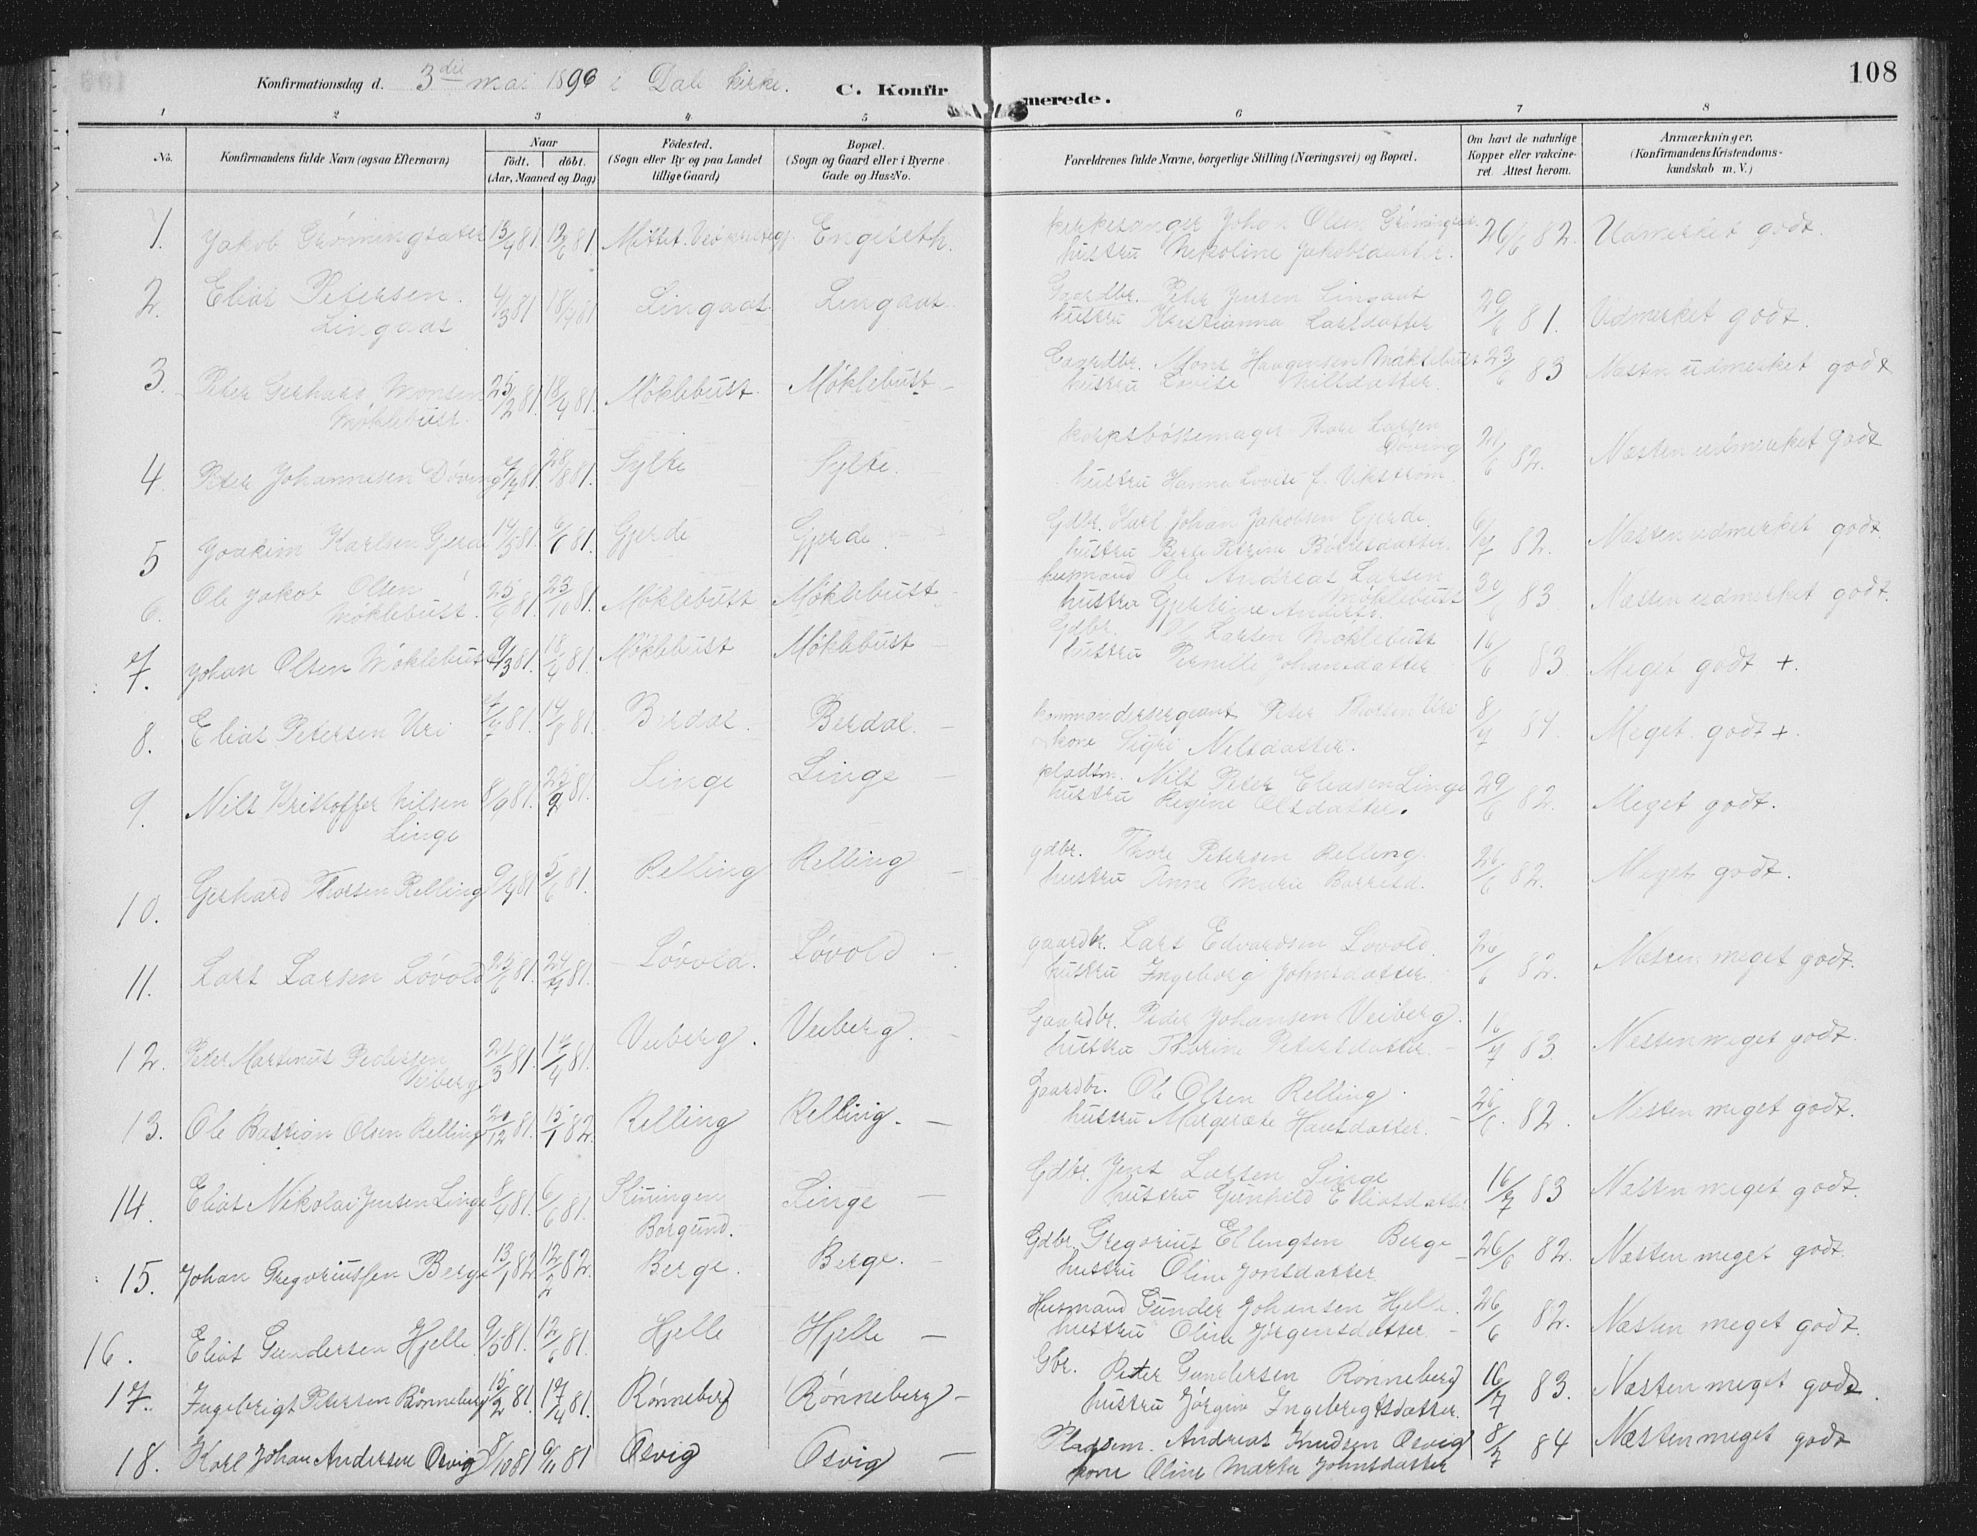 108
Konfirmationsdag d. 3die mai 1896 i Dale kirke. C. Konfirmerede.
1 2 3 4 5 6 7 8
No. Konfirmandens fulde Navn (ogsaa Efternavn) Naar födt. döbt. (Aar, Maaned og Dag) Födested. (Sogn eller By og paa Landet tillige Gaard) Bopæl. (Sogn og Gaard eller i Byerne Gade og Hus-No. Forældrenes fulde Navne, borgerlige Stilling (Næringsvei) og Bopæl. Om havt de naturlige Kopper eller vakcineret. Attest herom. Anmærkninger. (Konfirmandens Kristendomskundskab m. V.)
1. Jakob Grönningsæter 13/4 81 12/6 81. Engeseth. kirkesanger Johan Olsen 26/6 82. Udmerket godt.
hustru Nikoline Jakobsdatter.
2. Elias Petersen Lingaas 4/3 81 18/4 81 Lingaas. Lingaas. Gaardbr. Peter Jensen Lingaas 29/6 81. Udmerket godt.
hustru Kristianna Larsdatter
3. Peter Gerhard Monsen Möklebust. 25/2 81. 18/4 81. Möklebust. Möklebust – Gaardbr. Mons Haagensen Möklebust 23/6 83 Næsten udmerket godt
hustru Lovise Nilsdatter
4. Peter Johannesen Döving 81. 28/8 81. Sylte Sylte. – Thore Larsen Döving 82. Næsten udmerket godt
hustru Hanna Lovise f. Vikström
5 Joakim Karlsen Gjerde 14/5 81. 6/6 81. Gjerde Gjerde Gdbr. Karl Johan Jakobsen Gjerde. 6/7 82. Næsten udmerket godt.
hustru Berte Petrine
6. Ole Jakob Olsen Möklebust. 25/9 81. 23/10 81. Möklebust Möklebust – husmand Ole Andreas Larsen Möklebust 30/6 83 Næsten udmerket godt.
hustru
7. Johan Olsen Möklebust 9/3 81. 18/4 81. Möklebust Möklebust – Gdbr. Larsen Möklebust 16/6 83 Meget godt +.
hustru Pernille Johansdatter
8. Elias Petersen Uri 81. 14/8 81. Berdal – Berdal. – kommandersergeant Peter Thorsen Uri 8/7 84. Meget godt +.
kone Sigri Nilsdatter.
9. Nils Kristoffer Nilsen Linge 8/9 81. 81. Linge Linge – pladsm. Nils Peter Eliasen Linge 29/6 82. Meget godt.
hustru Regine Olsdatter.
10. Gerhard Thorsen Relling 9/4 81 5/6 81. Relling Relling – gdbr. Thore Petersen Relling. 26/6 82. Meget godt.
hustru Anne Marie
11. Lars Larsen Lövold 25/6 81. 24/7 81. Lövold. Lövold – gaardbr. Lars Edvardsen Lövold. 26/6 82. Næsten meget godt.
hustru Ingeborg Johnsdatter.
12. Peter Martinus Pedersen Veiberg 21/3 81. 17/4 81. Veiberg. Veiberg. – Gaardbr. Peder Johansen Veiberg. 16/7 83 Næsten meget godt.
hustru Thorine Petersdatter. –
13. Ole Bastian Olsen Relling 20/12 81. 15/1 82. Relling Relling. – Gaardbr. Ole Olsen Relling. 26/6. 82. Næsten meget godt.
hustru Margrete Hansdatter. –
14. Elias Nikolai Jensen Linge 8/4 81. 6/6 81. Sluningen Borgund. Linge – Gdbr. Jens Larsen Linge 16/7 83 Næsten meget godt.
hustru Gunhild Eliasdatter
15. Johan Gregoriussen Berge 13/1 82 12/2 82. Berge. Berge. – Gdbr. Gregorius Ellingsen Berge – 26/6 82. Næsten meget godt.
hustru Oline Jonsdatter.
16. Elias Gundersen Hjelle 9/5 81. 12/6 81. Hjelle Hjelle – Husmand Gunder Johansen Hjelle. 26/6 82. Næsten meget godt.
hustru Oline Jörgensdatter. –
17. Ingebrigt Petersen Rönneberg 15/2 81. 17/4 81. Rönneberg Rönneberg – Gbr. Peter Gundersen Rönneberg 16/7 83. Næsten meget godt.
hustru Jörgine Ingebrigtsdatter.
18. Karl Johan Andersen Osvig 9/10 81 6/11 81 Osvig Osvig – Pladsem. Andreas Knudsen Osvig 8/7 84 Næsten meget godt
kone Oline Marta Johnsdatter